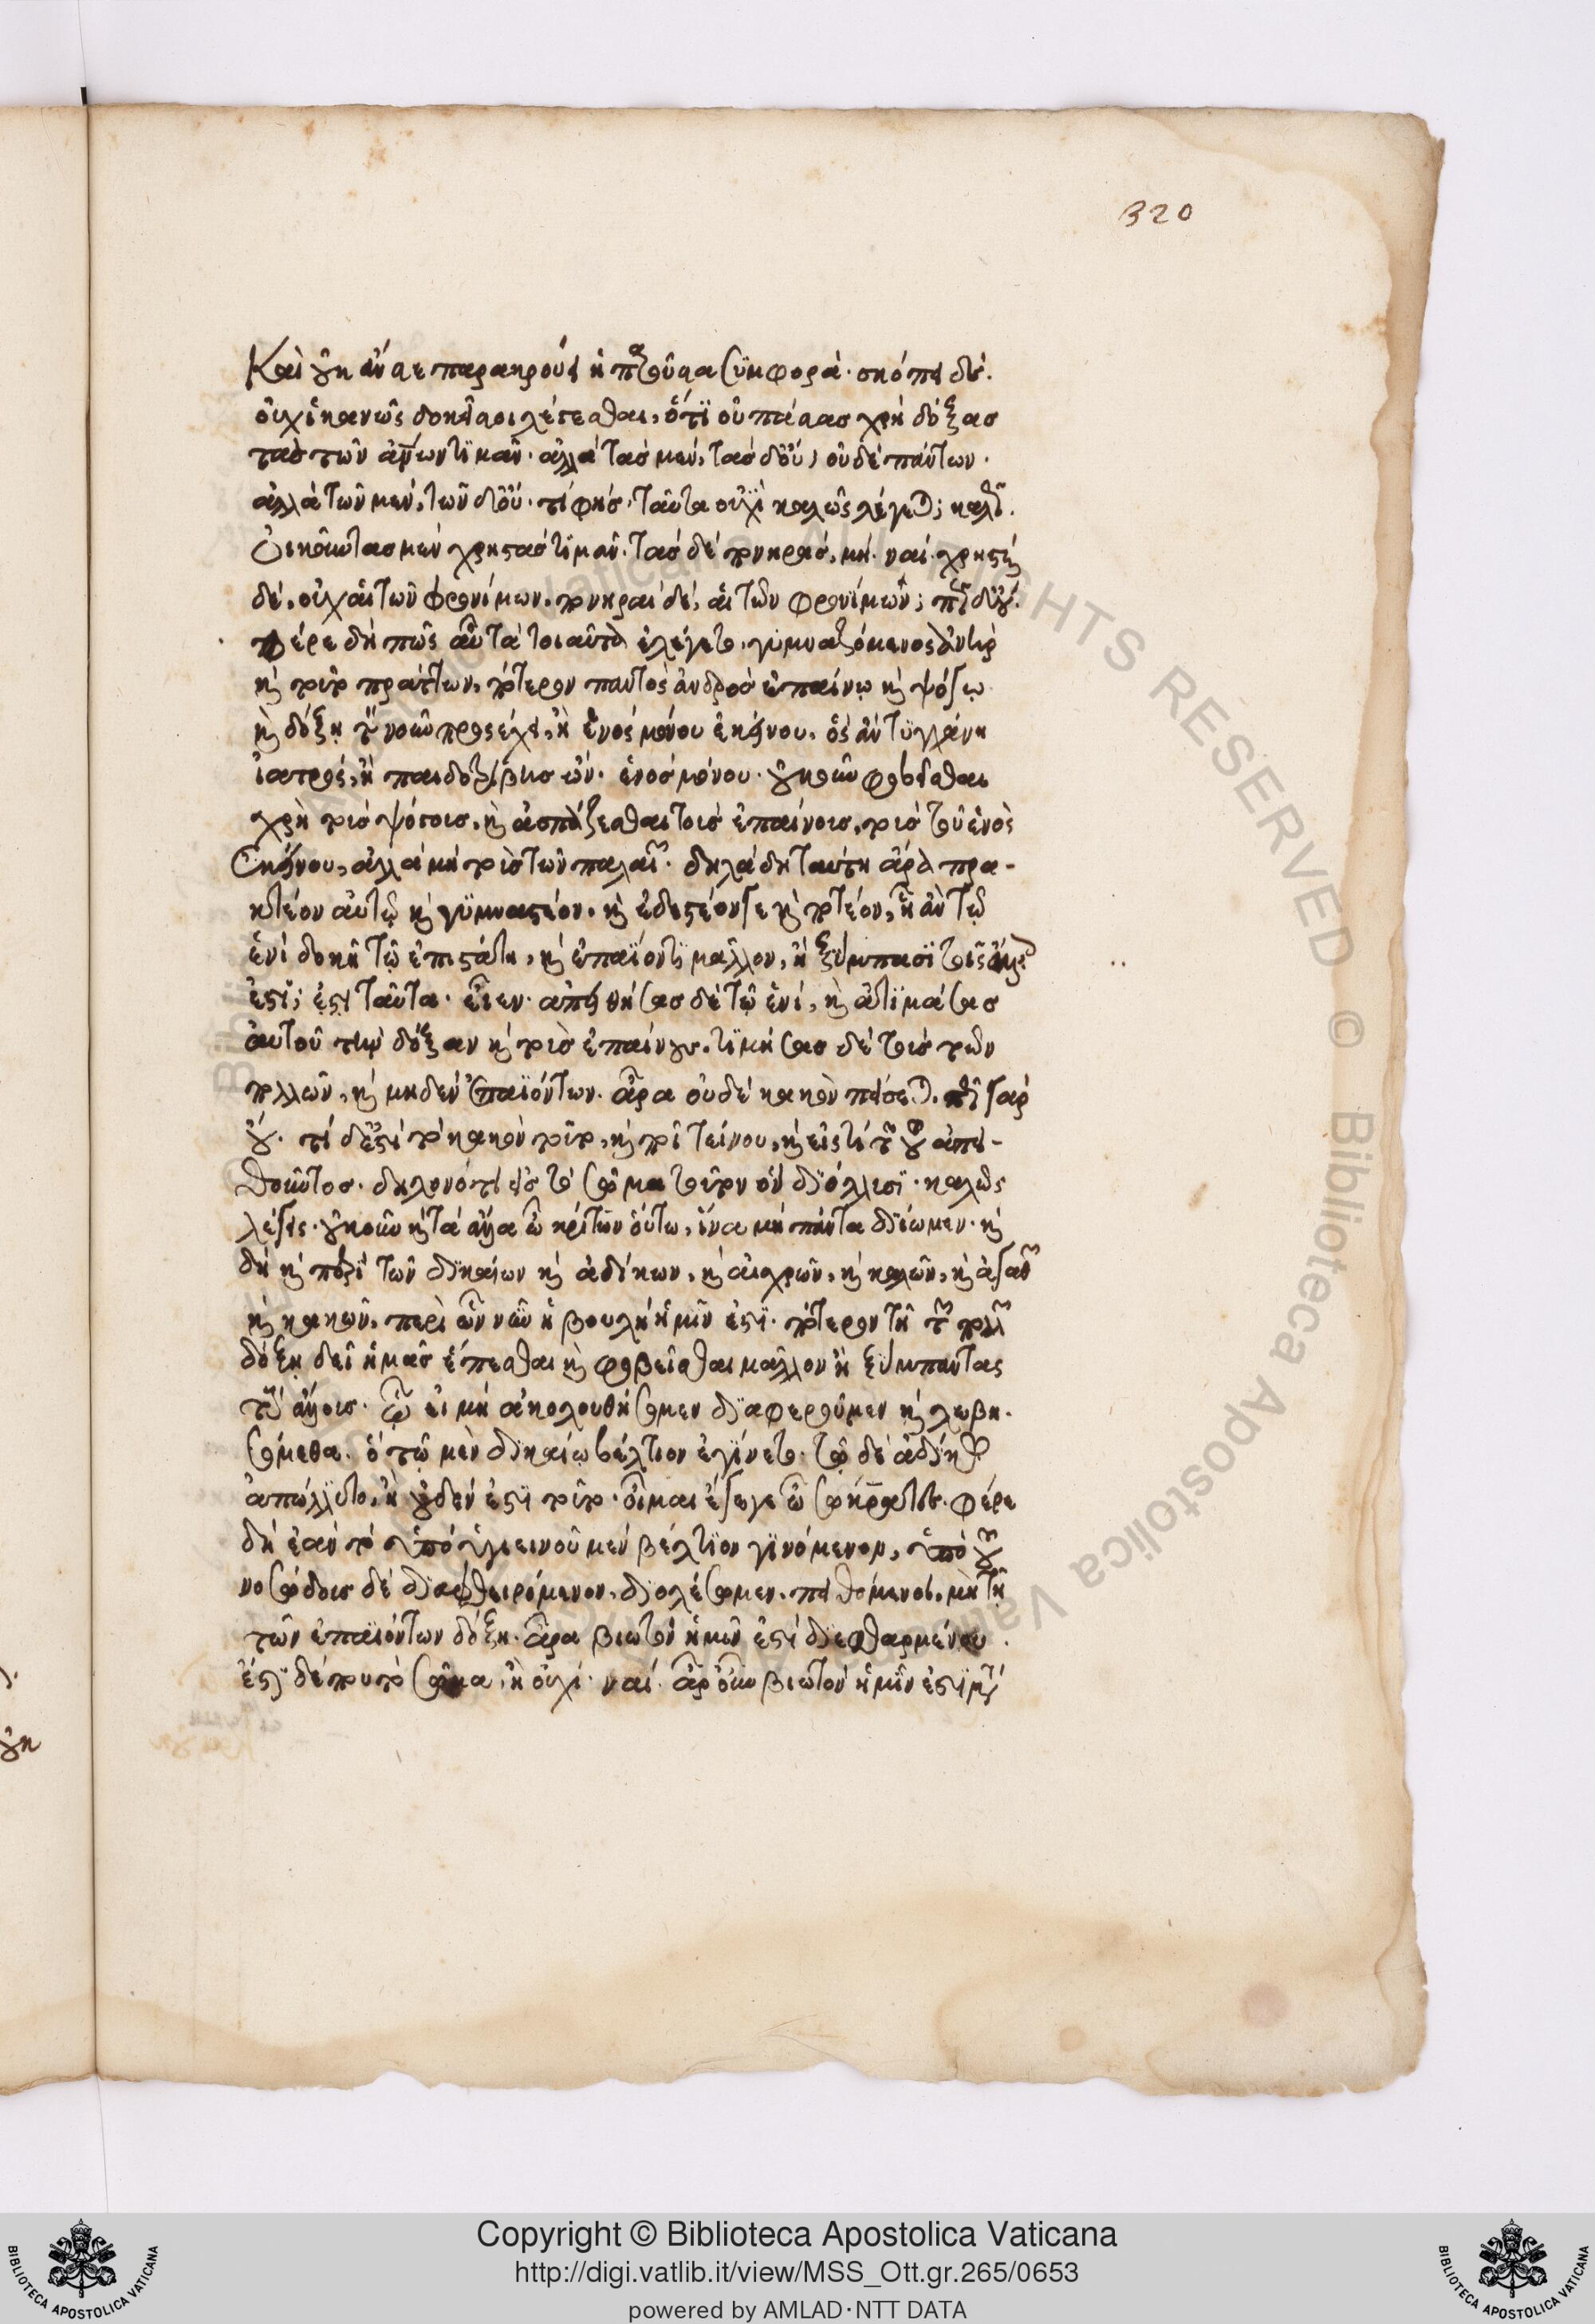 320
Καὶ οὐκ ἄν σε παρακρούει ἡ παροῦσα ξυμφορά· σκόπει δέ·
οὐχ ἱκανῶς δοκεῖ σοι λέγεσθαι, ὅτι οὐ πάσας χρὴ δόξας
τὰς τῶν ἀνων τιμᾶν· ἀλλὰ τὰς μέν, τὰς δ' οὔ; οὐδὲ πάντων·
ἀλλὰ τῶν μέν, τῶν δ' οὔ· τί φής· ταῦτα οὐχὶ καλῶς λέγεται; καλῶς·
Οὐκοῦν τὰς μὲν χρηστὰς τιμᾶν· τὰς δὲ πονηράς, μή· ναί· χρησταὶ
δέ, οὐχ αἱ τῶν φρονίμων, πονηραὶ δέ, αἱ τῶν φρονίμων; πῶς δ' οὔ·
φέρε δὴ πῶς αὖ τὰ τοιαῦτα ἐλέγετο, γυμναζόμενος ἀνὴρ
καὶ τοῦτο πράττων, πότερον παντὸς ἀνδρὸς ἐπαίνῳ καὶ ψόγῳ
καὶ δόξῃ τὸν νοῦν προσέχει, ἢ ἑνὸς μόνου ἐκείνου, ὃς ἂν τυγχάνῃ
ἰατρός, ἢ παιδοτρίβης ὤν· ἑνὸς μόνου· οὐκοῦν φοβεῖσθαι
χρὴ τοὺς ψόγους, καὶ ἀσπάζεσθαι τοὺς ἐπαίνους, τοὺς τοῦ ἑνὸς
ἐκείνου, ἀλλὰ μὴ τοὺς τῶν πολλῶν· δηλαδή ταύτῃ ἄρα πρα-
κτέον αὐτῷ καὶ γυμναστέον, καὶ ἐδεστέον γε καὶ ποτέον, ᾗ ἂν τῷ
ἑνὶ δοκῇ τῷ ἐπιστάτῃ, καὶ ἐπαΐοντι μᾶλλον, ἢ ξύμπασι τοῖς ἄλλοις
ἔστι; ἔστι ταῦτα· εἶεν· ἀπειθήσας δὲ τῷ ἑνί, καὶ ἀτιμάσας
αὐτοῦ τὴν δόξαν καὶ τοὺς ἐπαίνους, τιμήσας δὲ τοὺς τῶν
πολλῶν, καὶ μηδὲν ἐπαϊόντων· ἆρα οὐδὲ κακὸν πείσεται· πῶς γὰρ
οὔ· τί δ' ἔστι τὸ κακὸν τοῦτο, καὶ ποῖ τείνου, καὶ εἰς τί τῶν τοῦ ἀπει-
θοῦντος· δηλονότι εἰς τὸ σῶμα τοῦτον οὖν διόλλυσι· καλῶς
λέγεις· οὐκοῦν καὶ τὰ ἄλλα ὦ κρίτων οὕτω, ἵνα μὴ πάντα διίωμεν· καὶ
δὴ καὶ περὶ τῶν δικαίων καὶ ἀδίκων, καὶ αἰσχρῶν, καὶ καλῶν, καὶ ἀγαθῶν
καὶ κακῶν, περὶ ὧν νῦν ἡ βουλὴ ἡμῖν ἐστι· πότερον τῇ τῶν πολλῶν
δόξῃ δεῖ ἡμᾶς ἕπεσθαι καὶ φοβεῖσθαι μᾶλλον ἢ ξύμπαντας
τοὺς ἄλλους· ᾧ εἰ μὴ ἀκολουθήσομεν διαφεροῦμεν καὶ λωβη-
σόμεθα· ὃ τῷ μὲν δικαίῳ βέλτιον ἐγίνετο· τῷ δὲ ἀδίκῳ
ἀπώλλυτο, ἢ οὐδέν ἐστι τοῦτο· οἶμαι ἔγωγε ὦ Σώκρατες· φέρε
δὴ ἐὰν τὸ ὑπὸ ὑγιεινοῦ μὲν βέλτιον γινόμενον, ὑπὸ τοῦ
νοσώδους δὲ διαφθειρόμενον, διολέσωμεν, πειθόμενοι, μὴ τῇ
τῶν ἐπαϊόντων δόξῃ· ἆρα βιωτὸν ἡμῖν ἐστὶ διεφθαρμένου·
ἔστι δέ που τὸ σῶμα, ἢ οὐχί· ναί· ἆρ' οὖν βιωτὸν ἡμῖν ἐστὶ μετὰ
Copyright © Biblioteca Apostolica Vaticana
http://digi.vatlib.it/view/MSS_Ott.gr.265/0653
powered by AMLAD·NTT DATA